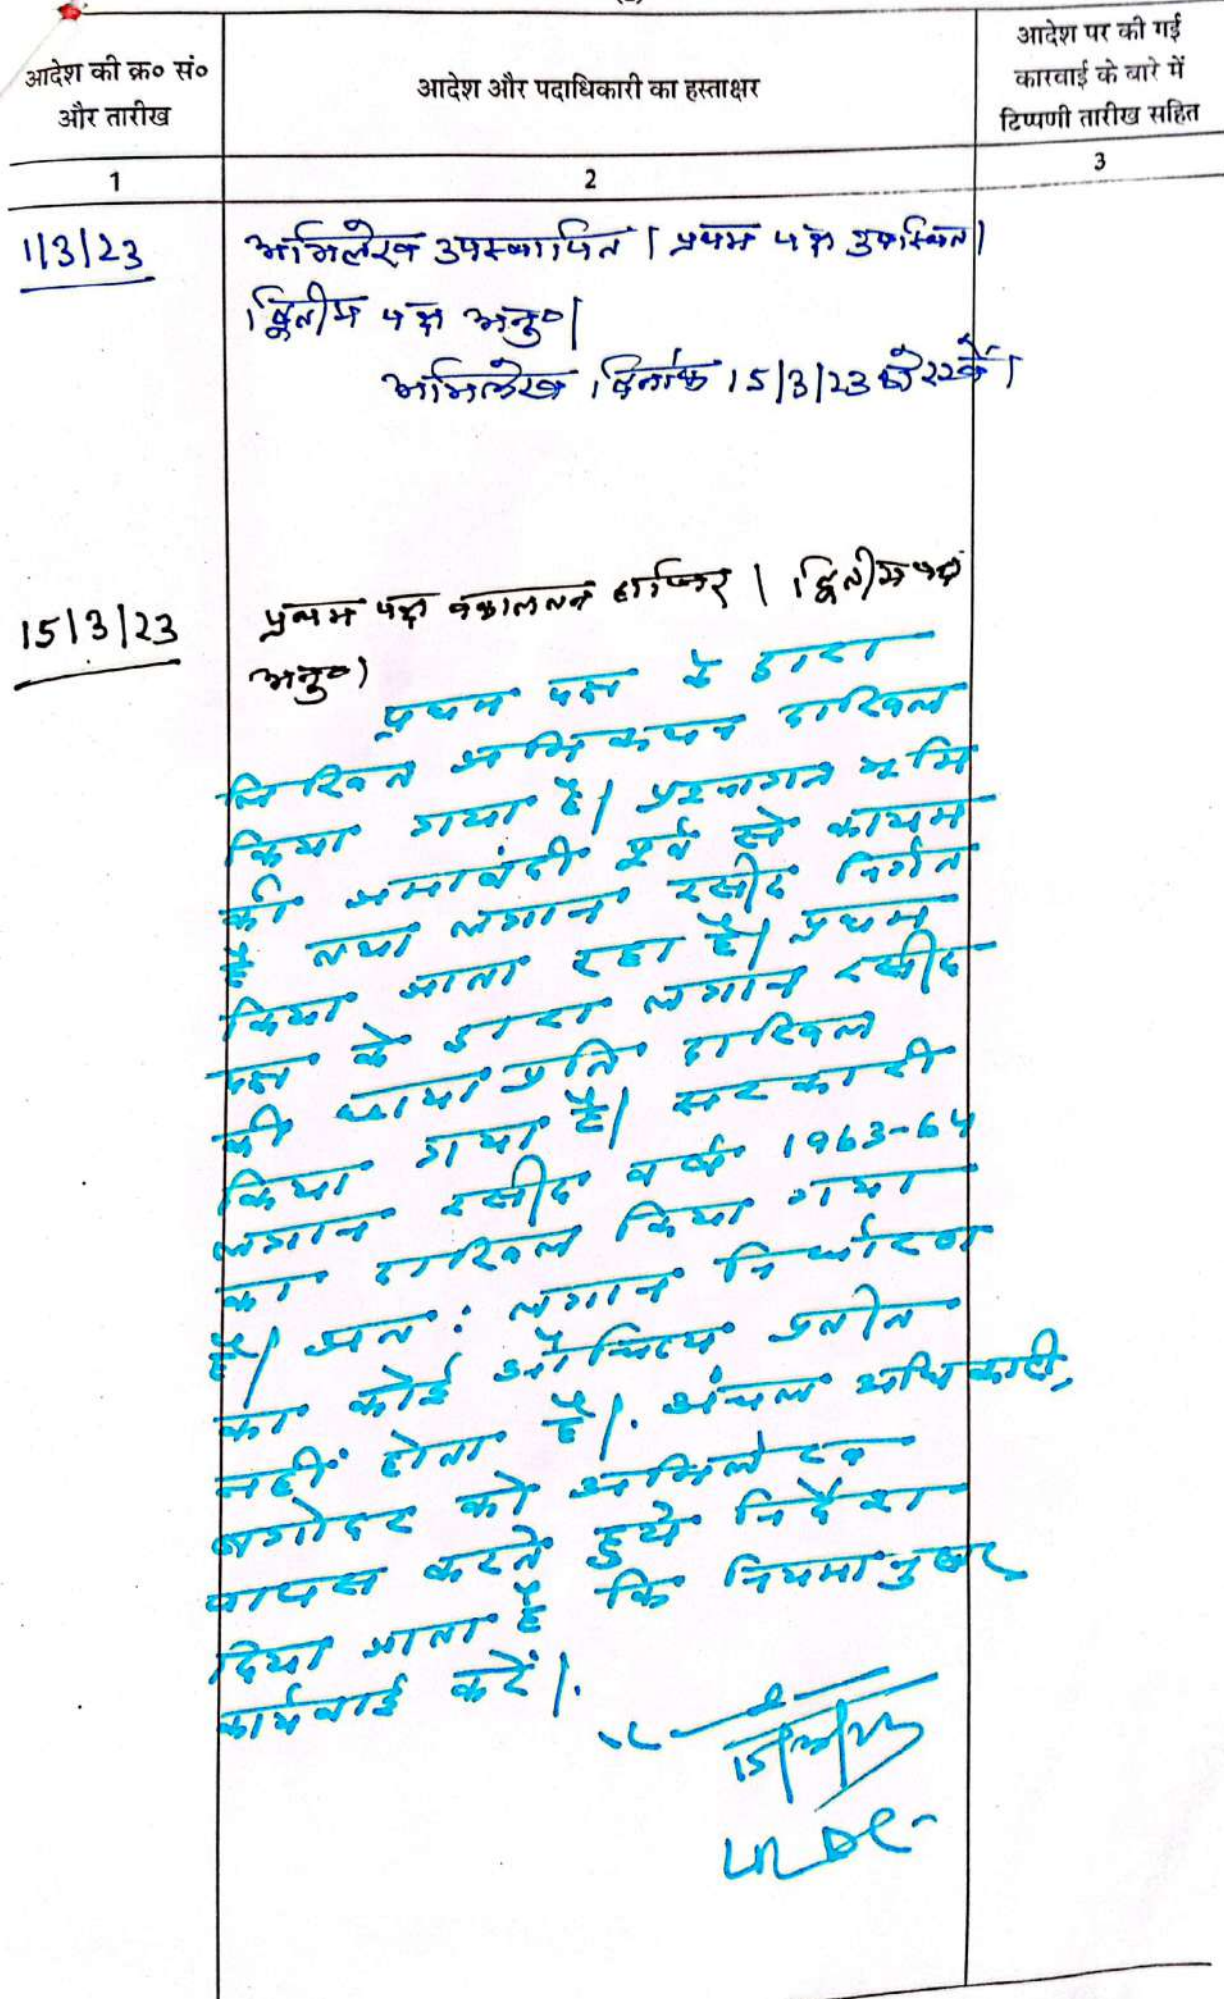 आदेश की क्र० सं०
और तारीख
आदेश और पदाधिकारी का हस्ताक्षर
आदेश पर की गई
कारवाई के बारे में
टिप्पणी तारीख सहित
1
2
3
1/3/23
अभिलेख उपस्थापित। प्रथम पक्ष उपस्थित।
द्वितीय पक्ष अनु०।
अभिलेख दिनांक 15/3/23 को रखें।
15/3/23
प्रथम पक्ष वकालतन हाजिर। द्वितीय पक्ष
अनु०।
प्रथम पक्ष के द्वारा
लिखित अभिकथन दाखिल
किया गया है। प्रश्नागत भूमि
की जमाबंदी पूर्व से कायम
है तथा लगान रसीद निर्गत
किया जाता रहा है। प्रथम
पक्ष के द्वारा लगान रसीद
की छायाप्रति दाखिल
किया गया है। सरकारी
लगान रसीद वर्ष 1963-64
का दाखिल किया गया
है। अत: लगान निर्धारण
का कोई औचित्य प्रतीत
नहीं होता है। अंचल अधिकारी,
बगोदर को अभिलेख
वापस करते हुये निर्देश
दिया जाता है कि नियमानुसार
कार्यवाई करें।